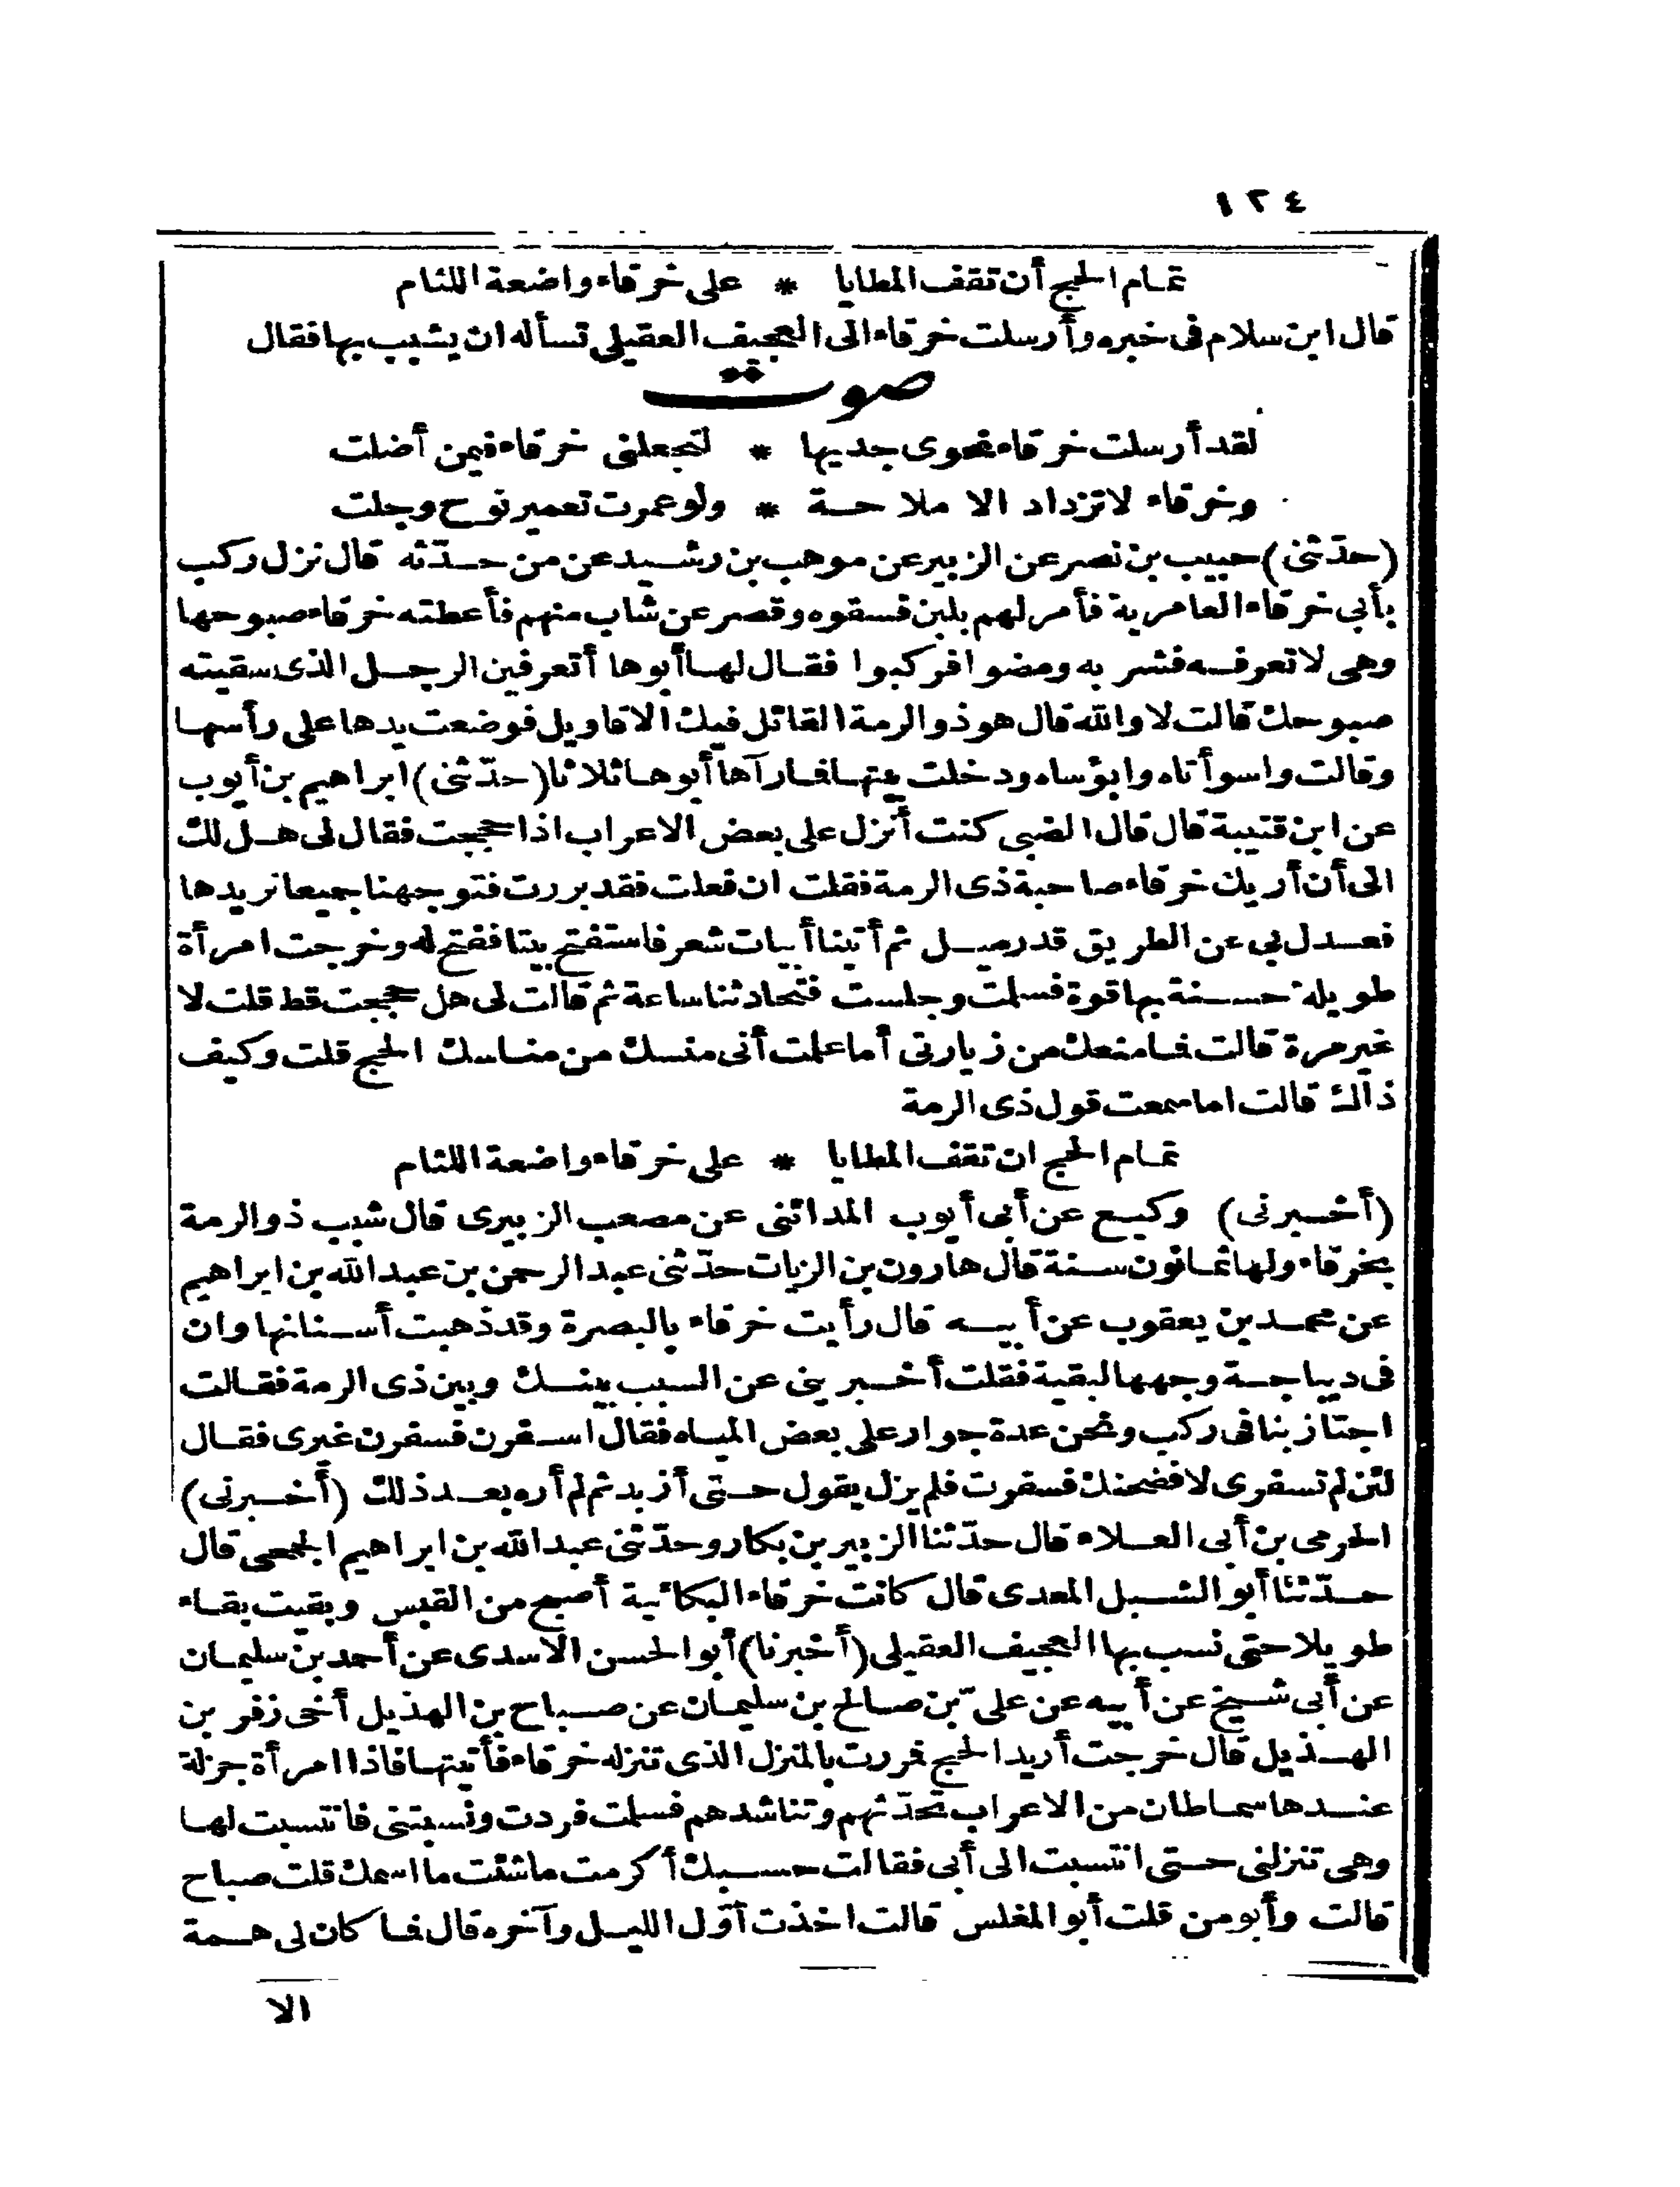 ١٢٤
تمام الحج أن تقف المطايا * على خرقاء واضعة اللثام
قال ابن سلام فى خبره وأرسلت خرقاء الى العجيف العقيلى تسأله ان يشبب بها فقال
صوت
لقد أرسلت خرقاء نحوى جديها * لتجعلنى خرقاء فيمن أضلت
وخرقاء لا تزداد الا ملاحة * ولو عمرت تعمير نوح وجلت
(حدّثنى) حبيب بن نصر عن الزبير عن موهب بن رشيد عن من حدّثه قال نزل ركب
بأبى خرقاء العامرية فأمر لهم بلبن فسقوه وقصر عن شاب منهم فأعطته خرقاء صبوحها
وهى لا تعرفه فشر به ومضوا فركبوا فقال لها أبوها أتعرفين الرجل الذى سقيته
صبوحك قالت لا والله قال هو ذو الرمة القائل فيك الاقاويل فوضعت يدها على رأسها
وقالت واسوأتاه وابؤساه ودخلت بيتها فما رآها أبوها ثلاثا (حدّثنى) ابراهيم بن أيوب
عن ابن قتيبة قال قال الضبى كنت أنزل على بعض الاعراب اذا حججت فقال لى هل لك
الى أن أريك خرقاء صاحبة ذى الرمة فقلت ان فعلت فقد بررت فتوجهنا جميعا نريدها
فعدل بى عن الطريق قدر ميل ثم أتينا أبيات شعر فاستفتح بيتا ففتح له وخرجت امرأة
طويلة حسنة بها قوة فسلمت وجلست فتحادثنا ساعة ثم قالت لى هل حججت قط قلت لا
غير مرة قالت فما منعك من زيارتى أما علمت أنى منسك من مناسك الحج قلت وكيف
ذاك قالت اما سمعت قول ذى الرمة
تمام الحج ان تقف المطايا * على خرقاء واضعة اللثام
(أخبرنى) وكيع عن أبى أيوب المدائنى عن مصعب الزبيرى قال شبب ذو الرمة
بخرقاء ولها ثمانون سنة قال هارون بن الزيات حدّثنى عبد الرحمن بن عبد الله بن ابراهيم
عن محمد بن يعقوب عن أبيه قال رأيت خرقاء بالبصرة وقد ذهبت أسنانها وان
فى ديباجة وجهها لبقية فقلت أخبرينى عن السبب بينك وبين ذى الرمة فقالت
اجتاز بنا فى ركب ونحن عدة جوار على بعض المياه فقال اسفرن فسفرن غيرى فقال
لئن لم تسفرى لافضحنك فسفرت فلم يزل يقول حتى أزبد ثم لم أره بعد ذلك (أخبرنى)
الحرمى بن أبى العلاء قال حدّثنا الزبير بن بكار وحدّثنى عبد الله بن ابراهيم الجمحى قال
حدّثنا أبو الشبل المعدى قال كانت خرقاء البكائية أصبح من القبس وبقيت بقاء
طويلا حتى نسب بها العجيف العقيلى (أخبرنا) أبو الحسن الاسدى عن أحمد بن سليمان
عن أبى شيخ عن أبيه عن علىّ بن صالح بن سليمان عن صباح بن الهذيل أخى زفر بن
الهذيل قال خرجت أريد الحج فمررت بالمنزل الذى تنزله خرقاء فأتيتها فاذا امرأة جزلة
عندها سماطان من الاعراب تحدّثهم وتناشدهم فسلمت فردت ونسبتنى فانتسبت لها
وهى تنزلنى حتى انتسبت الى أبى فقالت حسبك أكرمت ما شئت ما اسمك قلت صباح
قالت وأبو من قلت أبو المغلس قالت اخذت أوّل الليل وآخره قال فما كان لى همة
الا